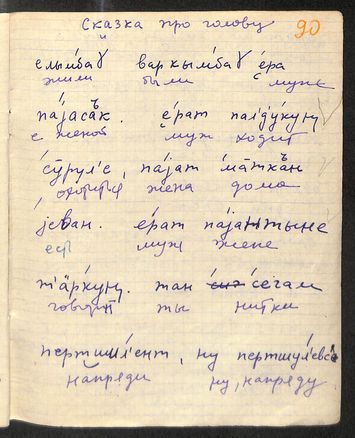 Сказка про голову
90
елы́мбаɣ варкы́мбаɣ е́ра
жили были мужь
па́јасак. е́рат палду́куӈ
с женой муж ходит
сӯруле, па́јат ма́ткан
охотиться жена дома
је́ван. е́рат пајантыне
есть муж жене
тӓ́ркуӈ. тан се́чам
говорит ты нитки
пертшиле́нт, ну пертшуле́все
напряди ну, напряду